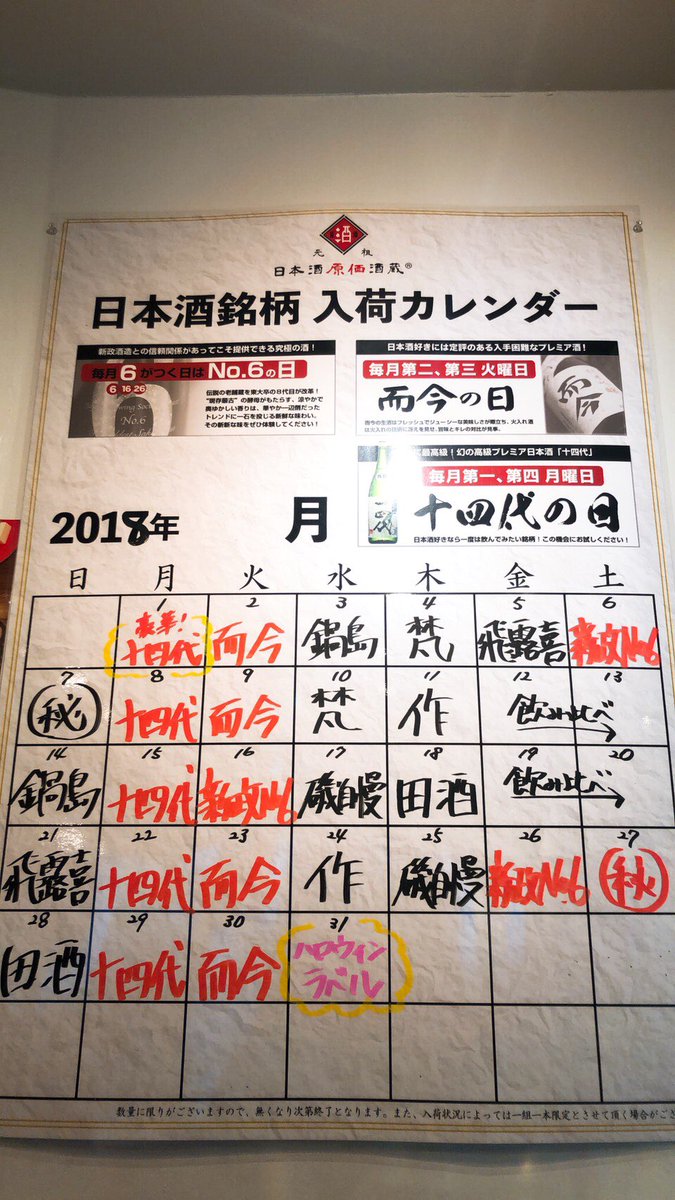 酒
元 祖
日本酒原価酒蔵®
日本酒銘柄 入荷カレンダー
新政酒造との信頼関係があってこそ提供できる究極の酒!
毎月6がつく日はNo.6の日
6 16 26
伝説の老舗蔵を東大卒の8代目が改革!
"現存最古"の酵母がもたらす、涼やかで
奥ゆかしい香りは、華やか一辺倒だった
トレンドに一石を投じる斬新な味わい。
その斬新な味をぜひ体験してください!
No.6
日本酒好きには定評のある入手困難なプレミア酒!
毎月第二、第三 火曜日
而今の日
而今の生酒はフレッシュでジューシーな美味しさが際立ち、火入れ酒
は火入れの技術に冴えを見せ、旨味とキレの対比が見事。
最高級!幻の高級プレミア日本酒「十四代」
毎月第一、第四 月曜日
十四代の日
日本酒好きなら一度は飲んでみたい銘柄!この機会にお試しください!
2018年 月
日 月 火 水 木 金 土
1 2 3 4 5 6
豪華!
十四代 而今 鍋島 梵 飛露喜 新政No.6
7 8 9 10 11 12 13
秘 十四代 而今 梵 作 飲み比べ
14 15 16 17 18 19 20
鍋島 十四代 新政No.6 磯自慢 田酒 飲み比べ
21 22 23 24 25 26 27
飛露喜 十四代 而今 作 磯自慢 新政No.6 秋
28 29 30 31
田酒 十四代 而今 ハロウィン
ラベル
数量に限りがございますので、無くなり次第終了となります。また、入荷状況によっては一組一本限定とさせて頂く場合がご